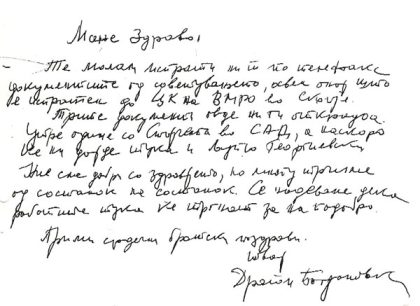 Мане Здраво,
- Те молам испрати ни ги по телефакс
документите од советувањето, освен оној што
е испратен до ЦК на ВМРО во Скопје.
Трите документи овде ни ги откраднаа.
Утре одиме со во САД, а наскоро
ќе ни дојде тука и Љупчо Георгиевски
Ние сме добри со здравјето, но многу
од состанок на состанок. Се надеваме дека
работите тука ќе тргнат за на подобро.
Прими срдечни братски поздрави.
твој
Драган Богдановски